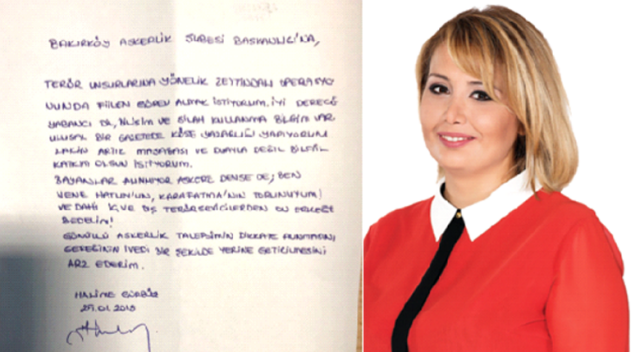 BAKIRKÖY ASKERLİK ŞUBESİ BAŞKANLIĞI'NA,
TERÖR UNSURLARINA YÖNELİK ZEYTİNDALI OPERASYO
NUNDA FİİLEN GÖREV ALMAK İSTİYORUM. İYİ DERECEDE
YABANCI DİL, NİŞAN VE SİLAH KULLANMA BİLGİM VAR
ULUSAL BİR GAZETEDE KÖŞE YAZARLIĞI YAPIYORUM
LAKİN ARTIK MAŞABAŞI VE DUAYLA DEĞİL BİLFİİL
KATKIM OLSUN İSTİYORUM.
BAYANLAR ALINMIYOR ASKERE DENSE DE; BEN
NENE HATUN'UN, KARAFATMA'NIN TORUNUYUM!
VE DAHİ İÇ VE DIŞ TERÖRSEVİCİLERDEN ON ERKEĞE
BEDELİM!
GÖNÜLLÜ ASKERLİK TALEBİMİN DİKKATE ALINMASINI
GEREĞİNİN İVEDİ BİR ŞEKİLDE YERİNE GETİRİLMESİNİ
ARZ EDERİM.
HALİME GÜRBÜZ